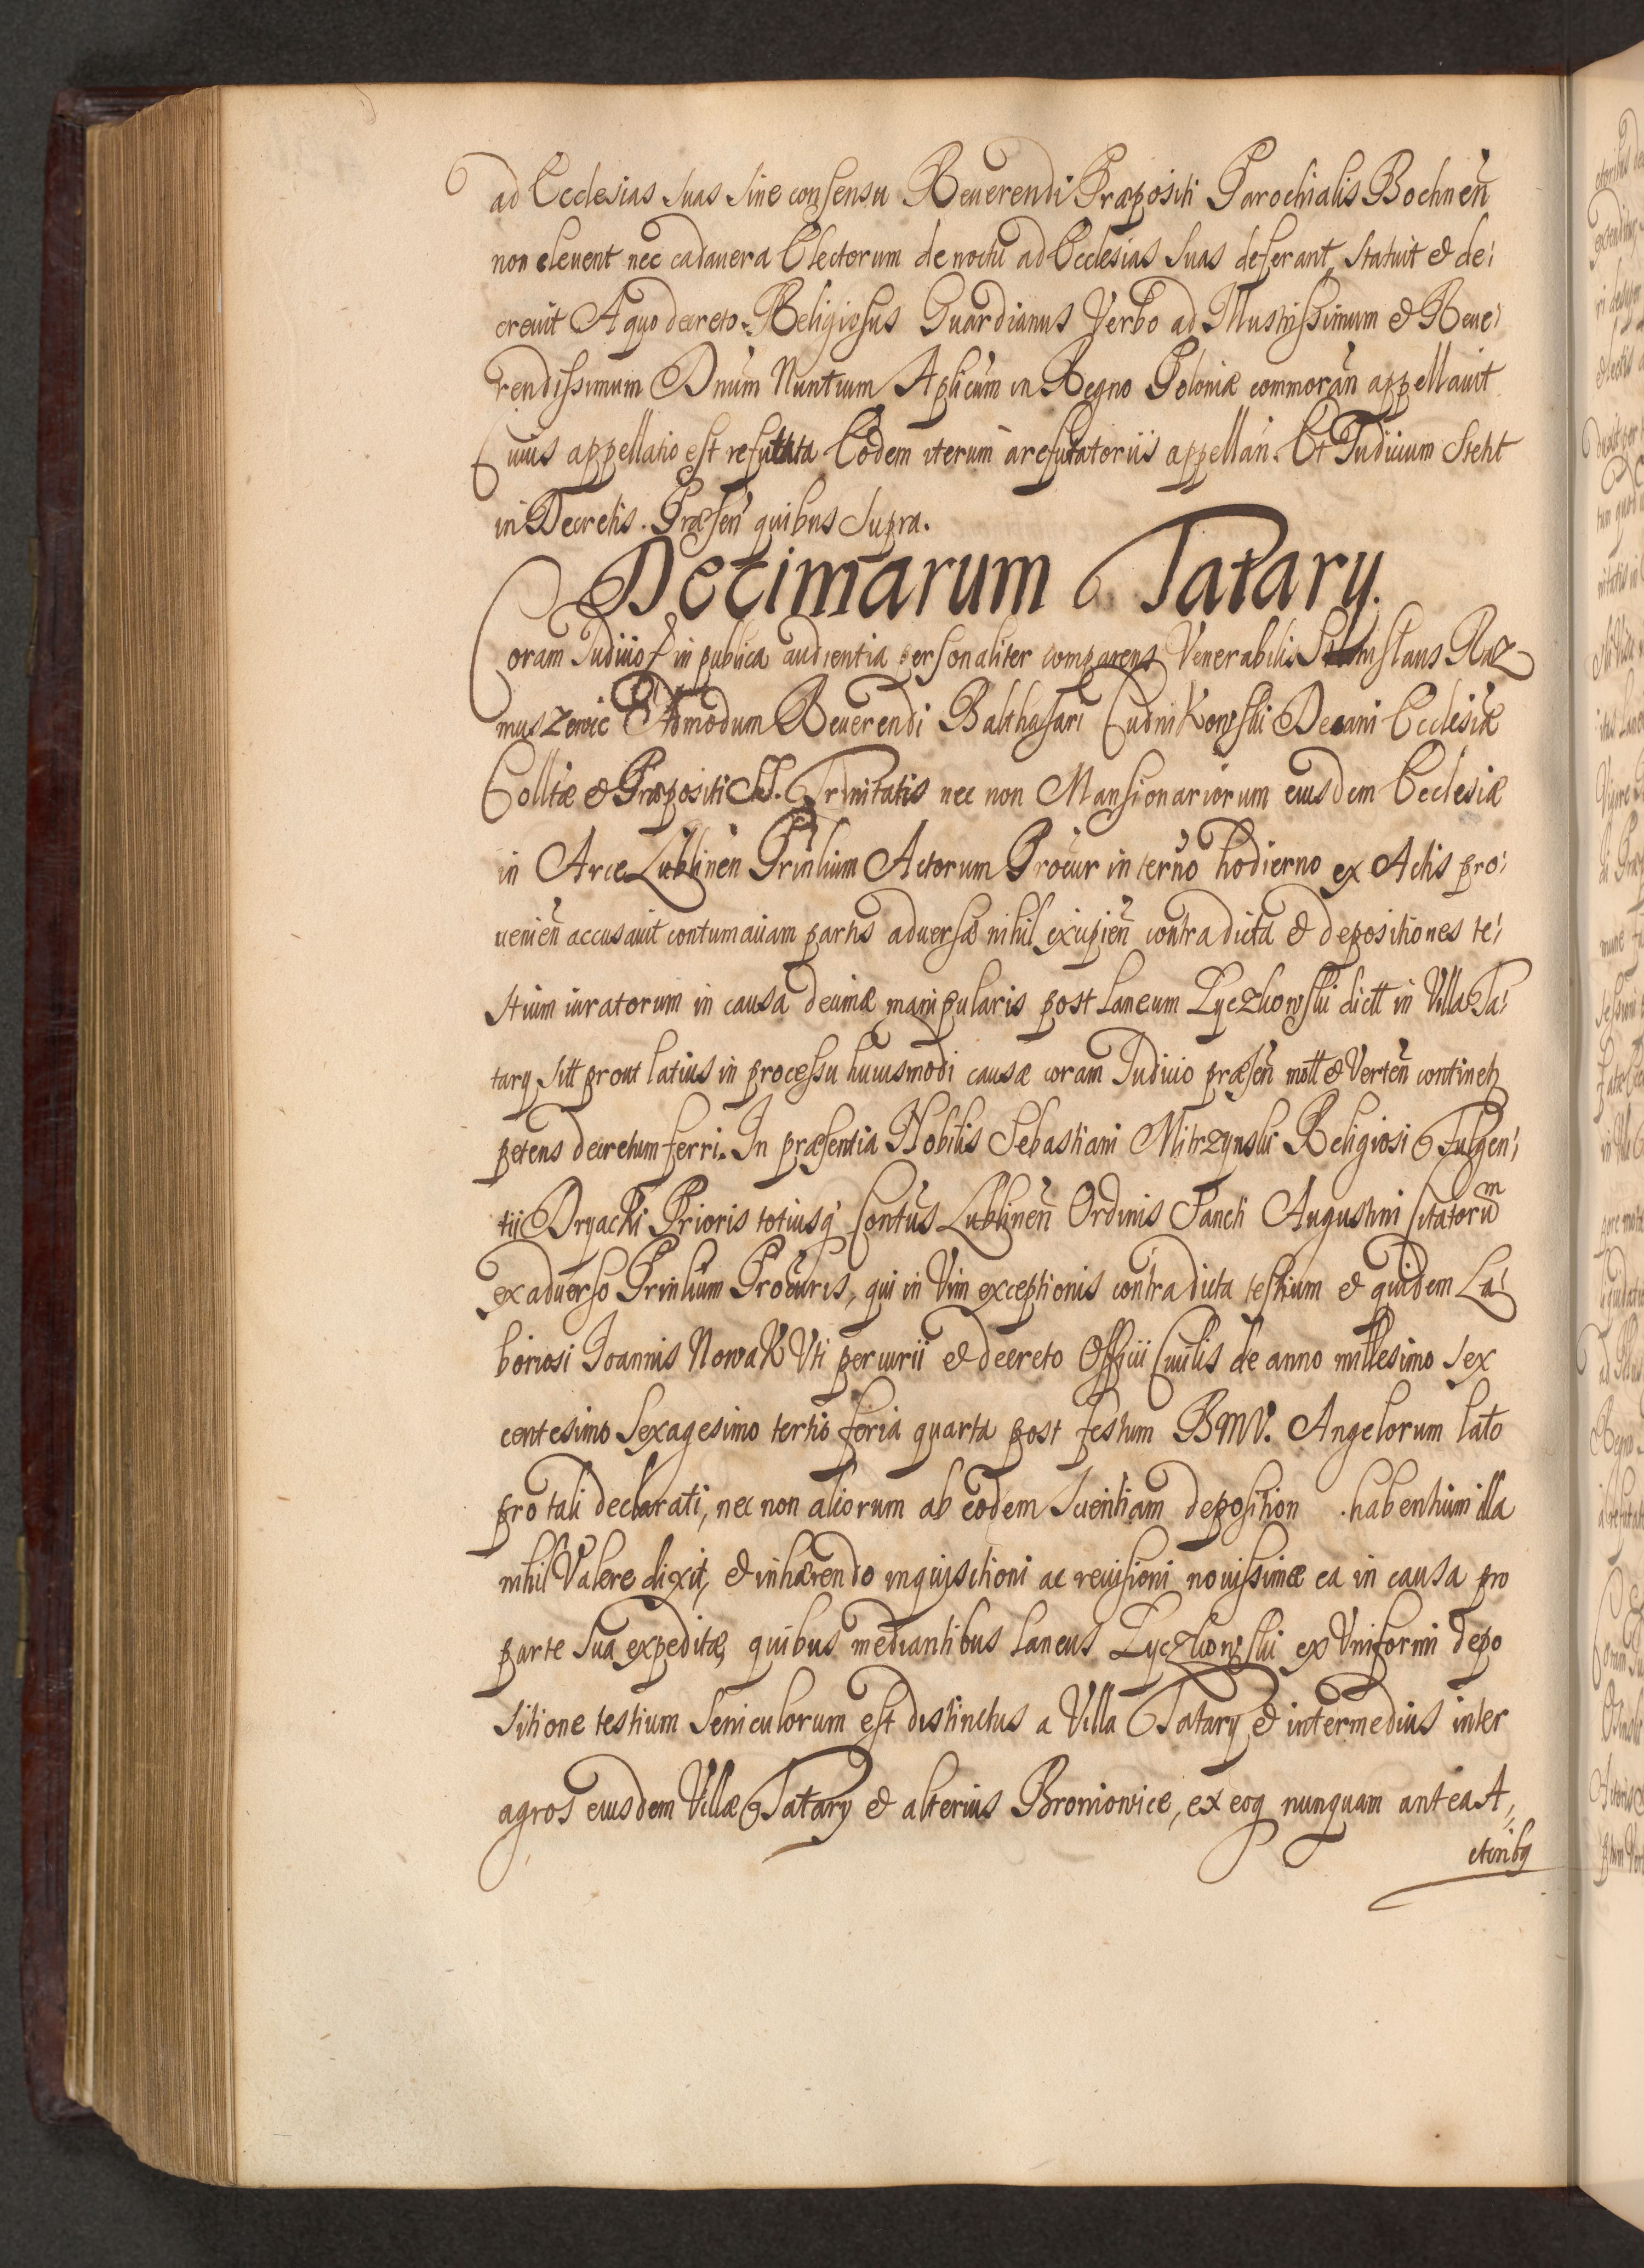 ad Ecclesias suas sine consensu Reuerendi Præpositi Parochialis Bochnen̄
non eleuent nec cadauera Electorum de noctu ad Ecclesias suas deferant, statuit & de:
creuit A quo decreto Religiosus Guardianus Verbo ad Illustrissimum & Reue:
rendissimum Dnum Nuntium Aplicum in Regno Poloniæ commoran̄ appellauit
Cuius appellatio est refutata Eodem iterum a refutatoriis appellan̄. Et Iudicium stetit
in Decretis. Præsen̄ quibus supra.
Decimarum Tatary.
Coram Iudicio in publica audientia personaliter comparens Venerabilis Stanislaus Raz-
muszewic Admodum Reuerendi Balthasari Cudnikowski Decani Ecclesiæ
Colltæ & Præpositi SS. Trinitatis nec non Mansionariorum eiusdem Ecclesiæ
in Arce Lublinen̄ Prinlium Actorum Procur in termo hodierno ex Actis pro:
uenien̄ accusauit contumaciam partis aduersæ nihil excipien̄ contra dicta & depositiones te:
stium iuratorum in causa decimæ manipularis post Laneum Lyczkowski dictt in Villa Ta:
tary sitt prout latius in processu huiusmodi causæ coram Iudicio præsen̄ mott & Verten̄ continetz
petens decretum ferri. In præsentia Nobilis Sebastiani Mitrzynski Religiosi Fulgen:
tii Dryacki Prioris totiusq Contus Lublinen̄ Ordinis Sancti Augustini Citatorum
ex aduerso Prinlium Procuris, qui in Vim exceptionis contra dicta testium & quidem La:
boriosi Ioannis Nowak Vti periurii & decreto Officii Ciuilis de anno millesimo sex
centesimo sexagesimo tertio feria quarta post festum BMV. Angelorum lato
pro tali declarati, nec non aliorum ab eodem scientiam deposition habentium illa
nihil Valere dixit, & inhærendo inquisitioni ac reuisioni nouissimæ ea in causa pro
parte sua expeditæ, quibus mediantibus Laneus Lyczkowski ex Vniformi depo
sitione testium Seniculorum est distinctus a Villa Tatary & intermedius inter
agros eiusdem Villæ Tatary & alterius Bronowice, ex eoq nunquam antea A,
ctoribq